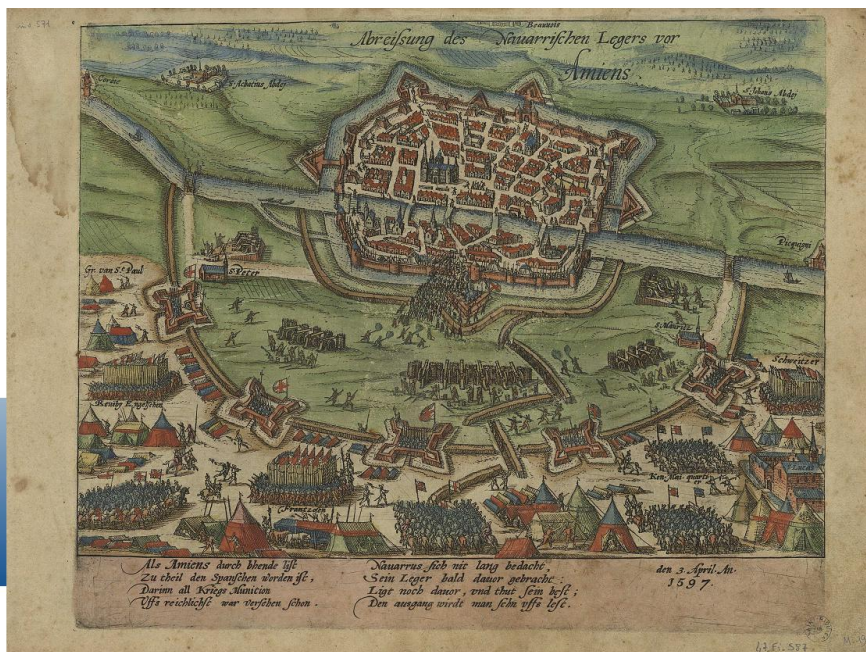 Beauuois
Abreissung des Nauarrischen Legers vor
Amiens.
Corbie
S. Achatius Abdej
S. Iohans Abdej
Picquigni
Gr. van S.t Paul
S. Peter
S. Mauritz
Schweitzer
Engelschen
S. Lucas
Kon. Mai. quartir
Frantzosen
Als Amiens durch bhende list
Zu theil den Spanschen worden ist,
Darinn all Kriegs Munition
Vffs reichlichst war versehen schon.
Nauarrus sich nit lang bedacht,
Sein Leger bald dauor gebracht:
Ligt noch dauor, vnd thut sein best;
Den ausgang wirdt man sehn vffs lest.
den 3. April. An.
1597.